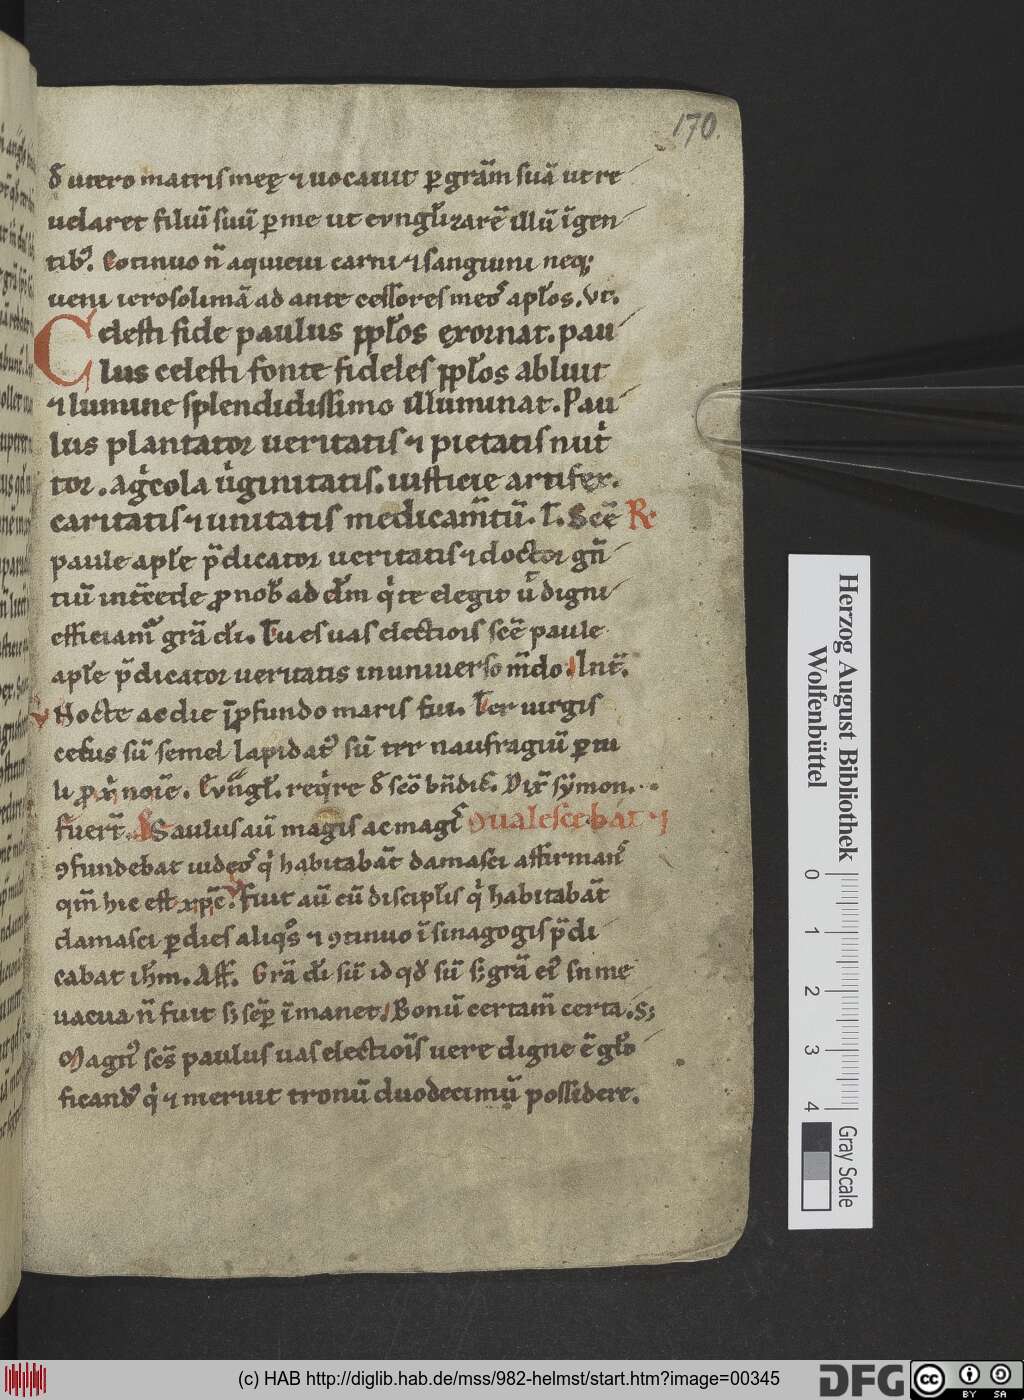 170.
đ utero matris meę ⁊ uocauit ꝑ grãm suã ut re
uelaret filiũ suũ ꝑ me ut evngl̃izarẽ illũ ĩ gen
tib⁹. Cotinuo ñ aquieui carni ⁊ sanguini neq;
ueni ierosolimã ad ante cessores meo⁹ apl̃os. Vt.
Celesti fide paulus ppl̃os ęxornat. pau
lus celesti fonte fideles ppl̃os abluit
⁊ lumine splendidissimo illuminat. Pau
lus plantator ueritatis ⁊ pietatis nut
tor. agcola uginitatis. iusticie artifex.
caritatis ⁊ unitatis medicam̃tũ. I. Scẽ R.
paule apl̃e p̃dicator ueritatis ⁊ doctor gñ
tiũ intẽcede ꝓ nob̃ ad dm̃ q te elegit ũ digni
efficiam⁹ grã di. Tu es uas electiois scẽ paule
apl̃e p̃dicator ueritatis in uniuerso m̃do. Int̃.
V Nocte ac die ĩ ꝓfundo maris fui. Ter uirgis
cesus sũ semel lapidat⁹ sũ ter naufragiũ ꝑtu
li ꝓ xp̃i noĩe. Evngl̃. reqre đ scõ bñdic̃. Dix̃ symon.
fuert̃. Saulus aũ magis ac mag⁹ ꝯualescebat ⁊
ꝯfundebat iudeo⁹ q habitabãt damasci affirman⁹
qm̃ hic est xpc̃. V fuit aũ cũ discipl̃is q habitabãt
damasci ꝑ dies aliqo⁹ ⁊ ꝯtinuo ĩ sinagogis p̃di
cabat ihm̃. Aff. Grã di sũ id qđ sũ ⁊ grã ei⁹ in me
uacua ñ fuit s; sep̃ ĩ manet. Bonũ certam̃ certa. S;
Magn⁹ scs̃ paulus uas electiois uere digne ẽ gl̃o
ficand⁹ q ⁊ meruit tronũ duodecimũ possidere.
Herzog August Bibliothek
Wolfenbüttel
0 1 2 3 4
Gray Scale
(c) HAB http://diglib.hab.de/mss/982-helmst/start.htm?image=00345
DFG
cc BY SA